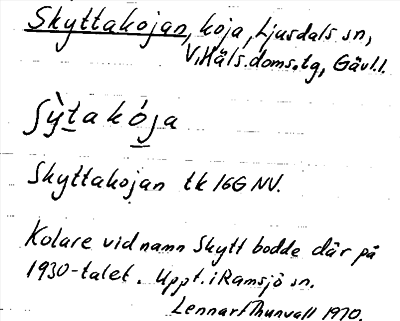 Skyttakojan, koja, Ljusdals sn,
V. Häls. doms. tg, Gävl. l.
ʃỳtakója
Skyttakojan tk 16G NV.
Kolare vid namn Skytt bodde där på
1930-talet. Uppt. i Ramsjö sn.
Lennart Thunvall 1970.